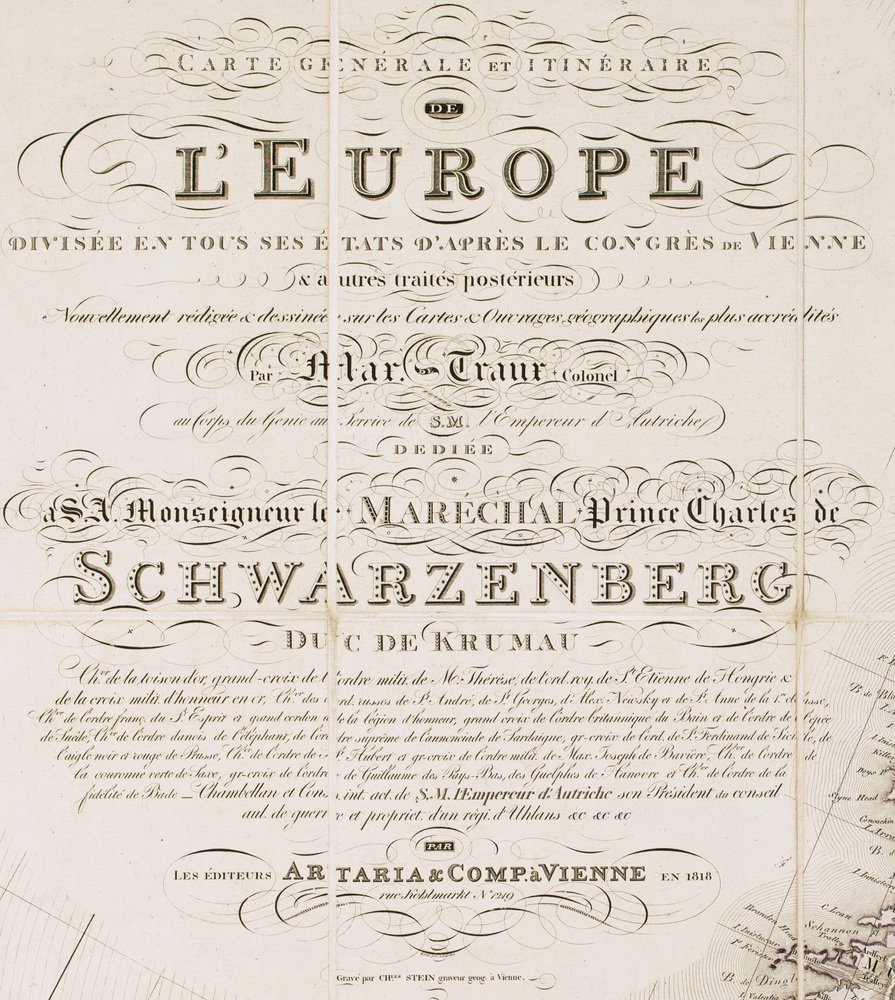 CARTE GÉNÉRALE ET ITINÉRAIRE
DE
L'EUROPE
DIVISÉE EN TOUS SES ÉTATS D'APRÈS LE CONGRÈS DE VIENNE
& autres traités postérieurs
Nouvellement rédigée & dessinée sur les Cartes & Ouvrages géographiques les plus accrédités
Par Max. de Traux Colonel
au Corps du Génie au Service de S.M. l'Empereur d'Autriche
DEDIÉE
à S.A. Monseigneur le MARÉCHAL Prince Charles de
SCHWARZENBERG
DUC DE KRUMAU
Ch.er de la toison d'or, grand-croix de l'ordre milit. de M. Thérèse, de l'ord. roy. de S.t Etienne de Hongrie &
de la croix milit. d'honneur en or, Ch.er des ord. russes de S.t André, de S.t Georges, d'Alex. Newsky et de S.te Anne de la 1.re classe,
Ch.er de l'ordre franç. du S.t Esprit et grand cordon de la légion d'honneur, grand croix de l'ordre britannique du Bain et de l'ordre de l'épée
de Suède, Ch.er de l'ordre danois de l'éléphant, de l'ordre suprème de l'annonciade de Sardaigne, gr-croix de l'ord. de S.t Ferdinand de Sicile, de
l'aigle noir et rouge de Prusse, Ch.er de l'ordre de S.t Hubert et gr-croix de l'ordre milit. de Max. Joseph de Bavière, Ch.er de l'ordre de
la couronne verte de Saxe, gr-croix de l'ordre de Guillaume des Pays-Bas, des Guelphes de Hanovre et Ch.er de l'ordre de la
fidélité de Bade _ Chambellan et Cons. int. act. de S.M. l'Empereur d'Autriche son Président du conseil
aul. de guerre et propriét. d'un régi. d'Uhlans &c &c &c
PAR
LES ÉDITEURS ARTARIA & COMP. à VIENNE EN 1818
rue Kohlmarkt N.º 1219
Gravé par CH.LES STEIN graveur géog. à Vienne.
Syne Head
C. Lean
Schannon
Tralley
B. de Dingle
I. Valentia